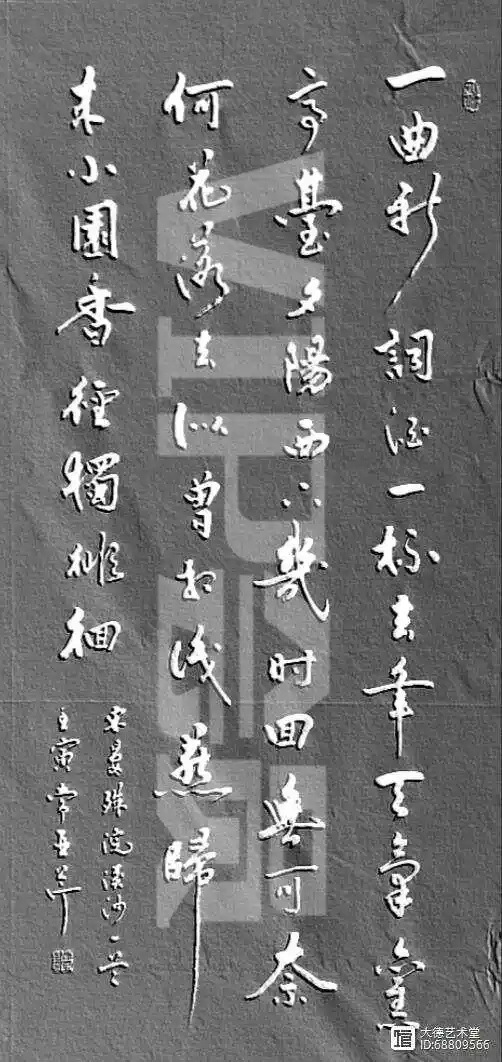 一曲新詞酒一杯去年天氣舊
亭臺夕陽西下幾时回無可奈
何花落去似曾相識燕歸
来小園香徑獨徘徊
宋晏殊浣溪沙一首
壬寅常亚
大德艺术堂
ID:68809566